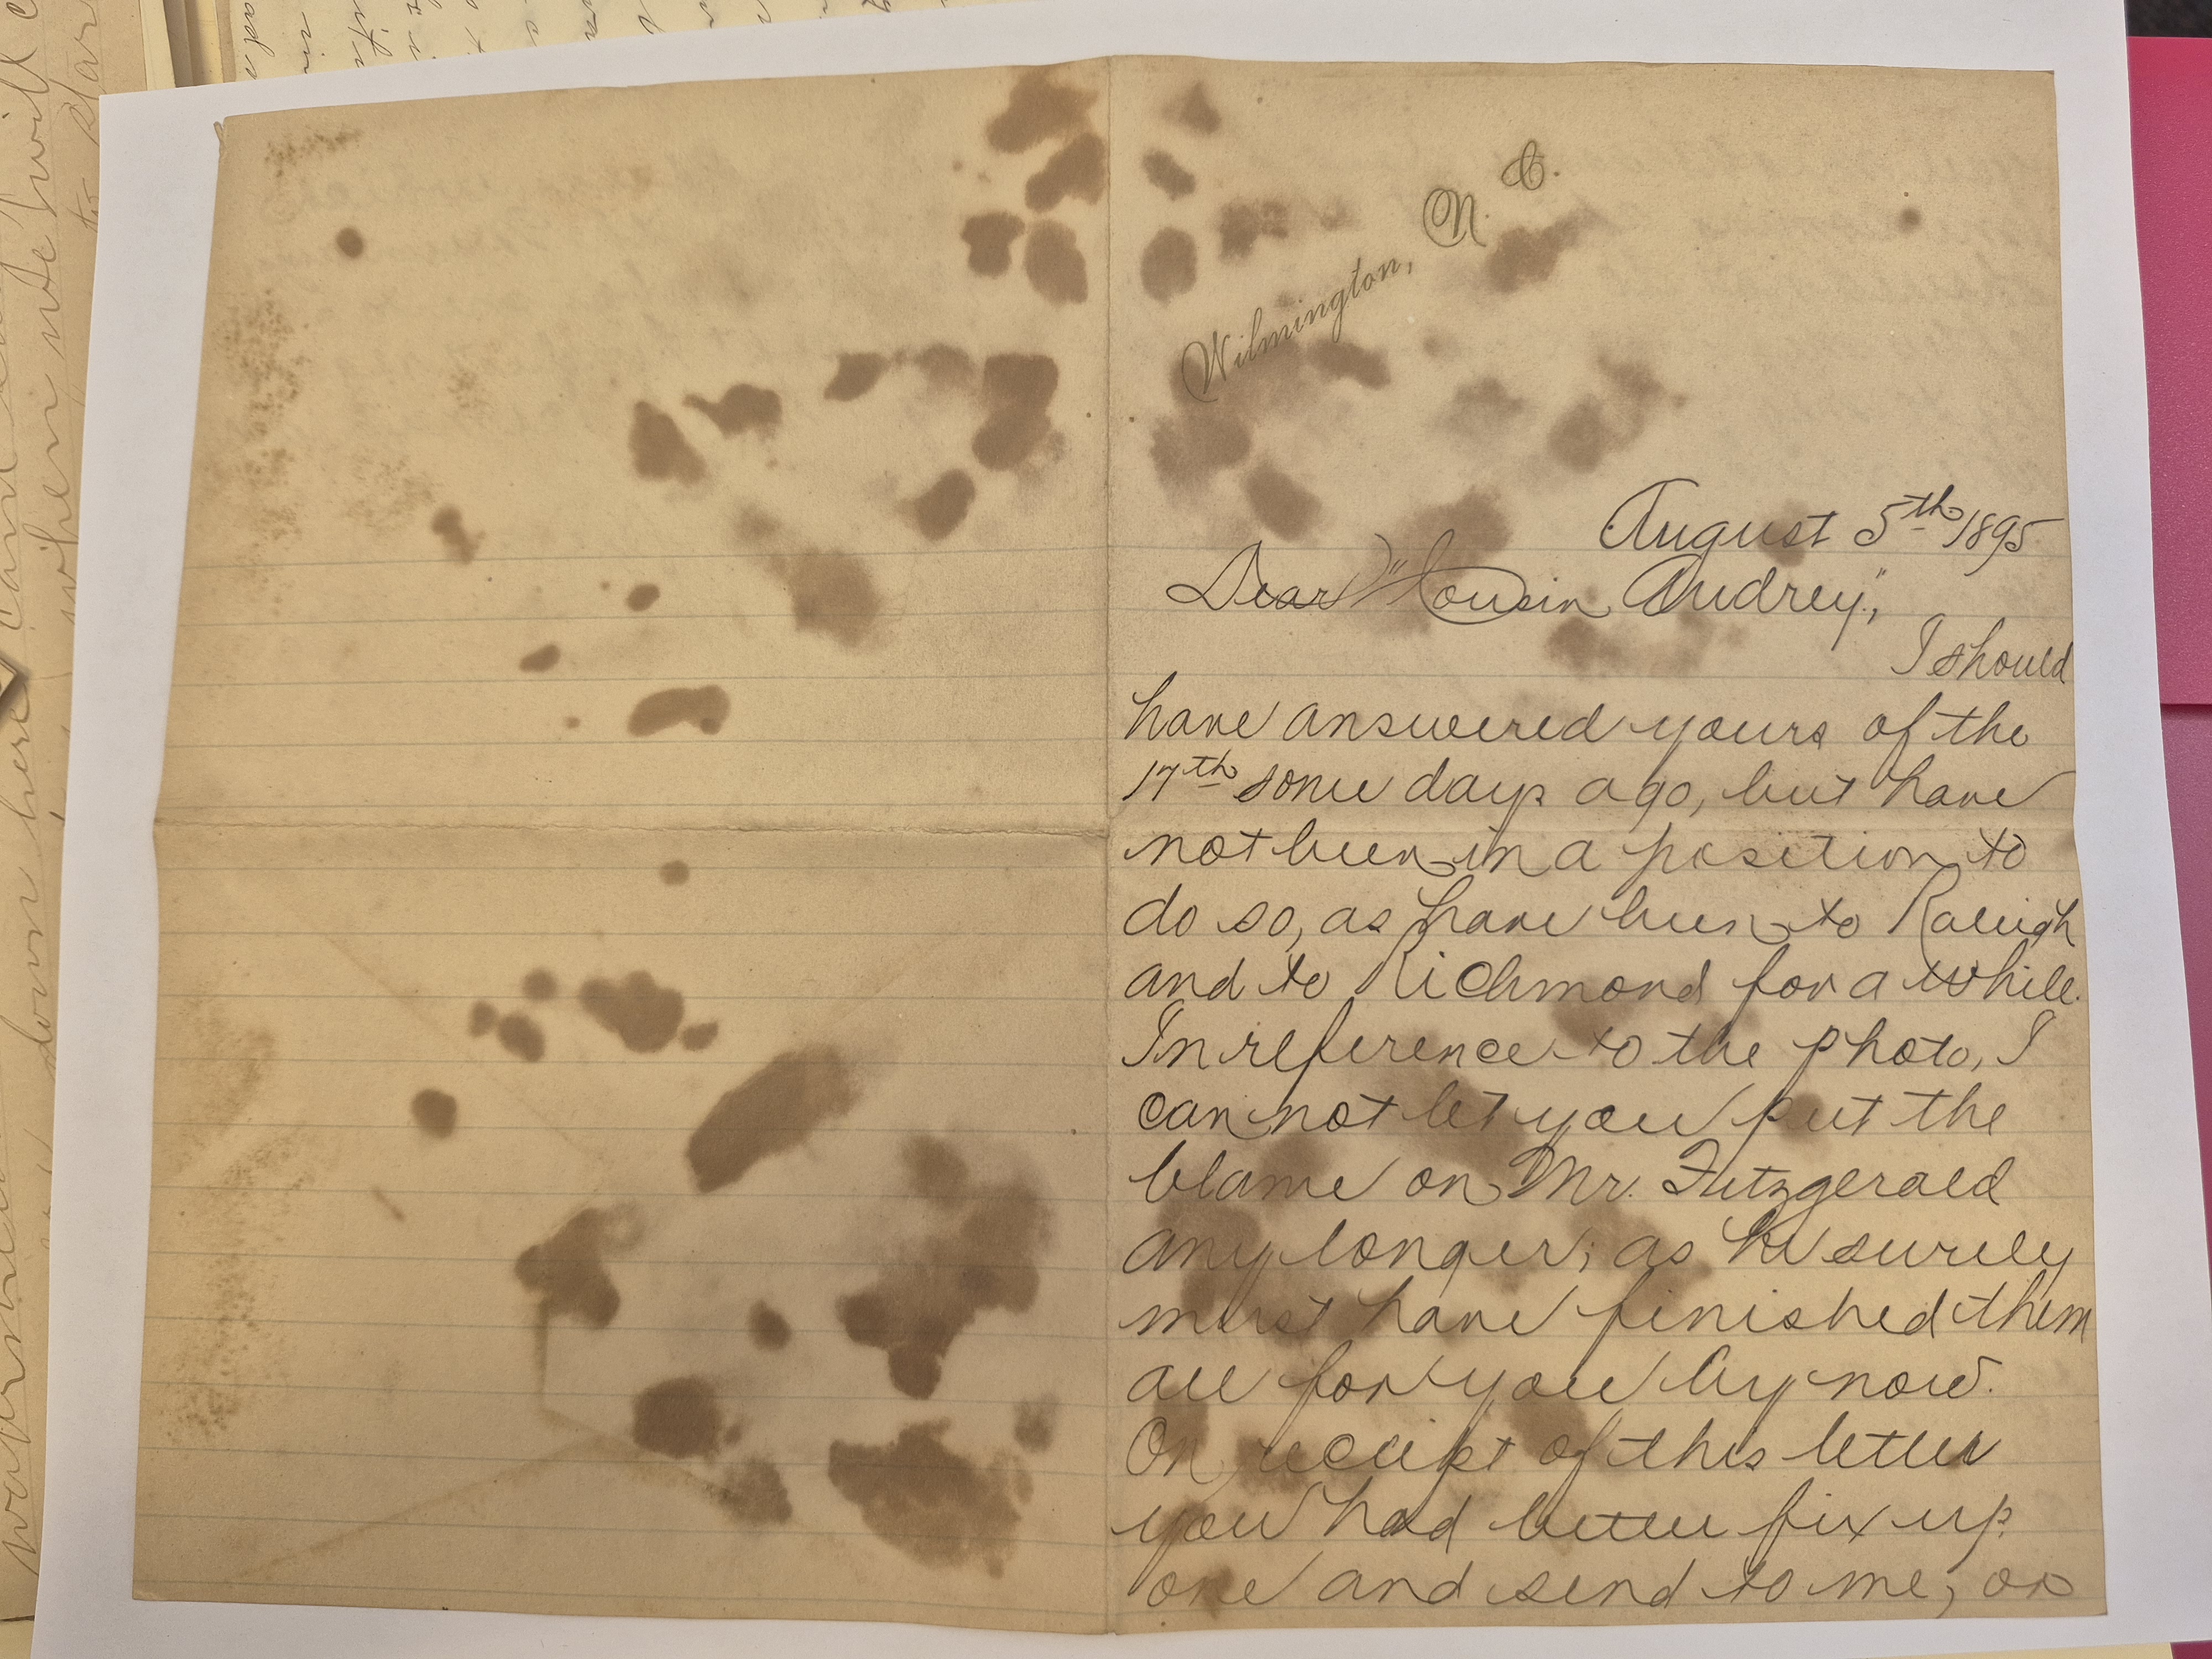 Wilmington, N. C.
August 5th 1895
Dear "Cousin Audrey",
I should
have answered yours of the
17th some days ago, but have
not been in a position to
do so, as have been to Raleigh
and to Richmond for a while.
In reference to the photo, I
can not let you put the
blame on Mr. Fitzgerald
any longer; as he surely
must have finished them
all for you by now.
On receipt of this letter
you had better fix up
one and send to me, or
down here
when we will